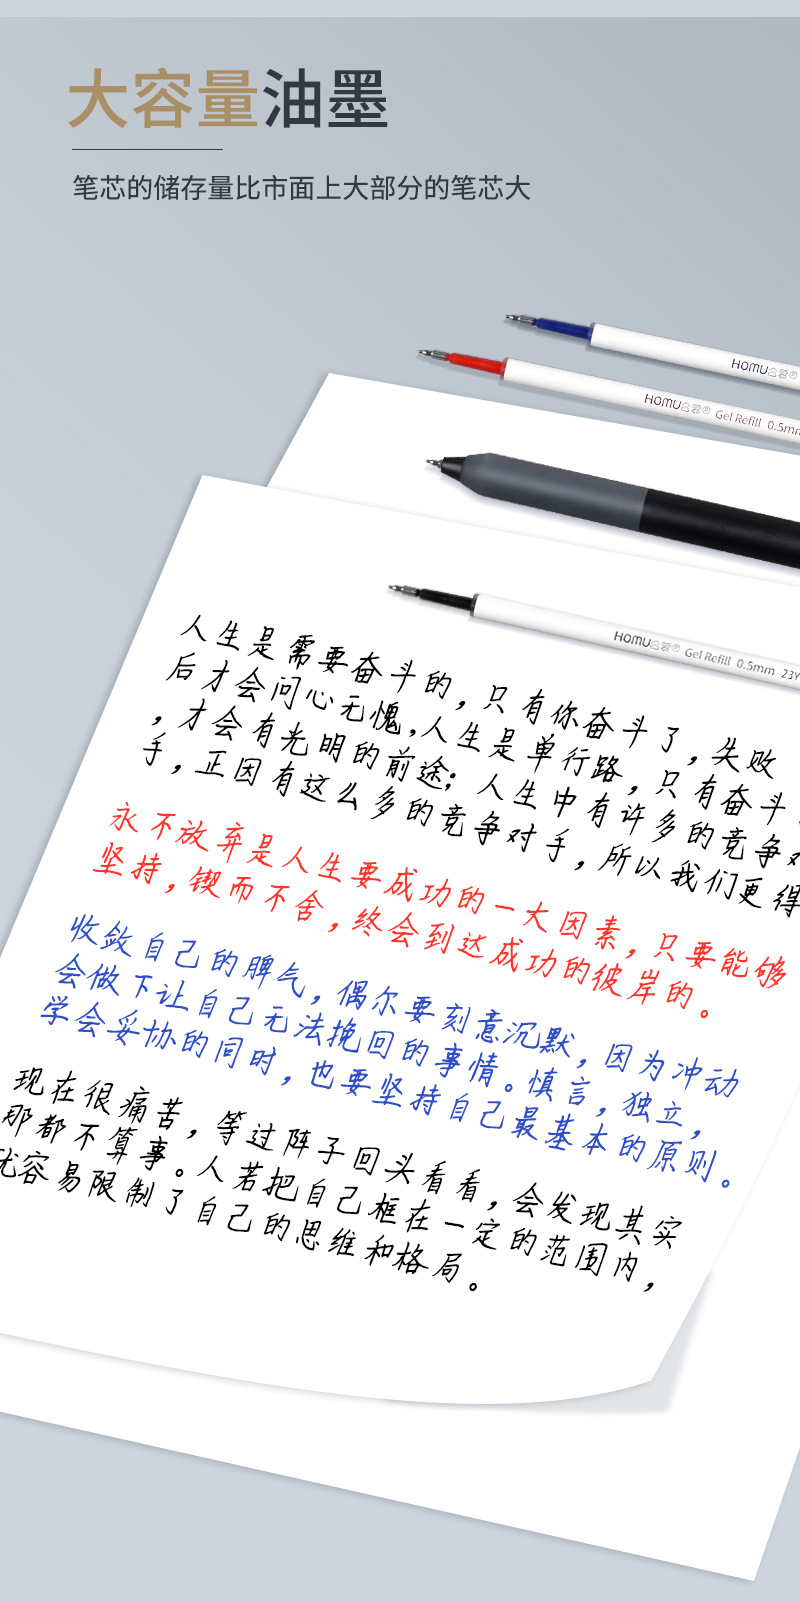 大容量油墨
笔芯的储存量比市面上大部分的笔芯大
HOMU
HOMU合慕® Gel Refill 0.5mm
HOMU合慕® Gel Refill 0.5mm 23Y
人生是需要奋斗的，只有你奋斗了，失败
后才会问心无愧，人生是单行路，只有奋斗
，才会有光明的前途；人生中有许多的竞争对
手，正因有这么多的竞争对手，所以我们更得
永不放弃是人生要成功的一大因素，只要能够
坚持，锲而不舍，终会到达成功的彼岸的。
收敛自己的脾气，偶尔要刻意沉默，因为冲动
会做下让自己无法挽回的事情。慎言，独立，
学会妥协的同时，也要坚持自己最基本的原则。
现在很痛苦，等过阵子回头看看，会发现其实
那都不算事。人若把自己框在一定的范围内，
就容易限制了自己的思维和格局。